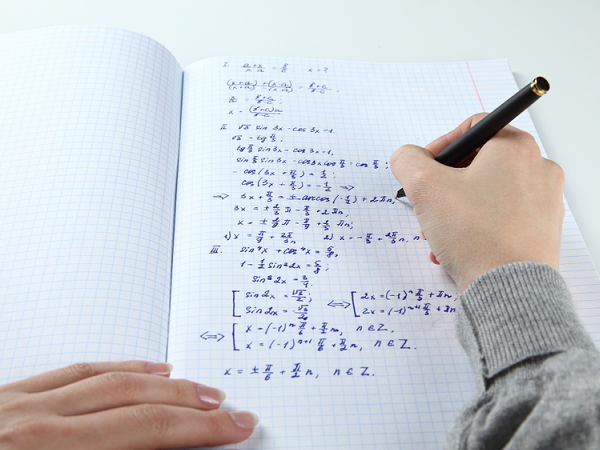 I. (a+x)/(x-a) = b/c x - ?
((x+a)+(x-a))/((x+a)-(x-a)) = (b+c)/(b-c);
x = ((b+c)a)/(b-c)
II. √3 sin 3x - cos 3x = 1.
√3 = tg π/3;
tg π/3 sin 3x - cos 3x = 1.
sin π/3 sin 3x - cos 3x cos π/3 = cos π/3;
- cos (3x + π/3) = 1/2;
cos (3x + π/3) = -1/2 ⇒
⇒ 3x + π/3 = ± arccos (-1/2) + 2πn,
3x = ± 2/3 π - π/3 + 2πn,
x = ± 2/9 π - π/9 + 2/3 πn;
1) x = π/9 + 2π/3 n 2) x = - π/3 + 2π/3 n, n
III. sin⁴x + cos⁴x = 5/8,
1 - 1/2 sin² 2x = 5/8;
sin² 2x = 3/4.
[ sin 2x = √3/2; ⇔ [ 2x = (-1)ⁿ π/3 + πn;
sin 2x = -√3/2 2x = (-1)ⁿ⁺¹ π/3 + πn
⇔ [ x = (-1)ⁿ π/6 + π/2 n, n ∈ Z,
x = (-1)ⁿ⁺¹ π/6 + π/2 n, n ∈ Z.
x = ± π/6 + π/2 n, n ∈ Z.